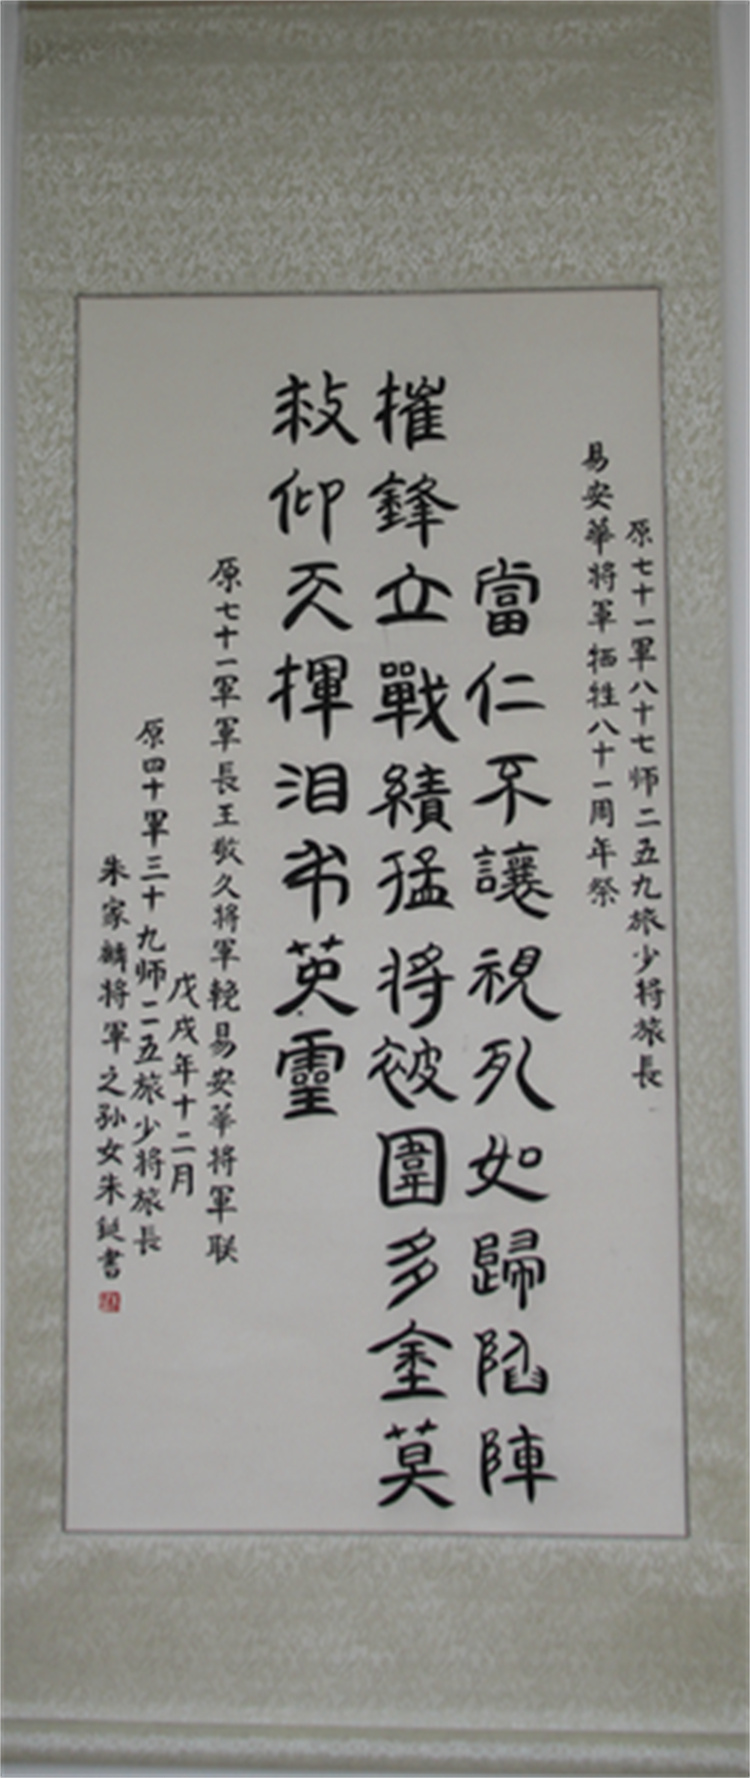 原七十一軍八十七师二五九旅少将旅長
易安華将軍牺牲八十一周年祭
當仁不讓視死如歸陷陣
摧鋒立戰績猛將被圍多金莫
救仰天揮泪弔英靈
原七十一軍軍長王敬久将軍輓易安華将軍联
戊戌年十二月
原四十軍三十九师一一五旅少将旅長
朱家麟将軍之孙女朱鋌書